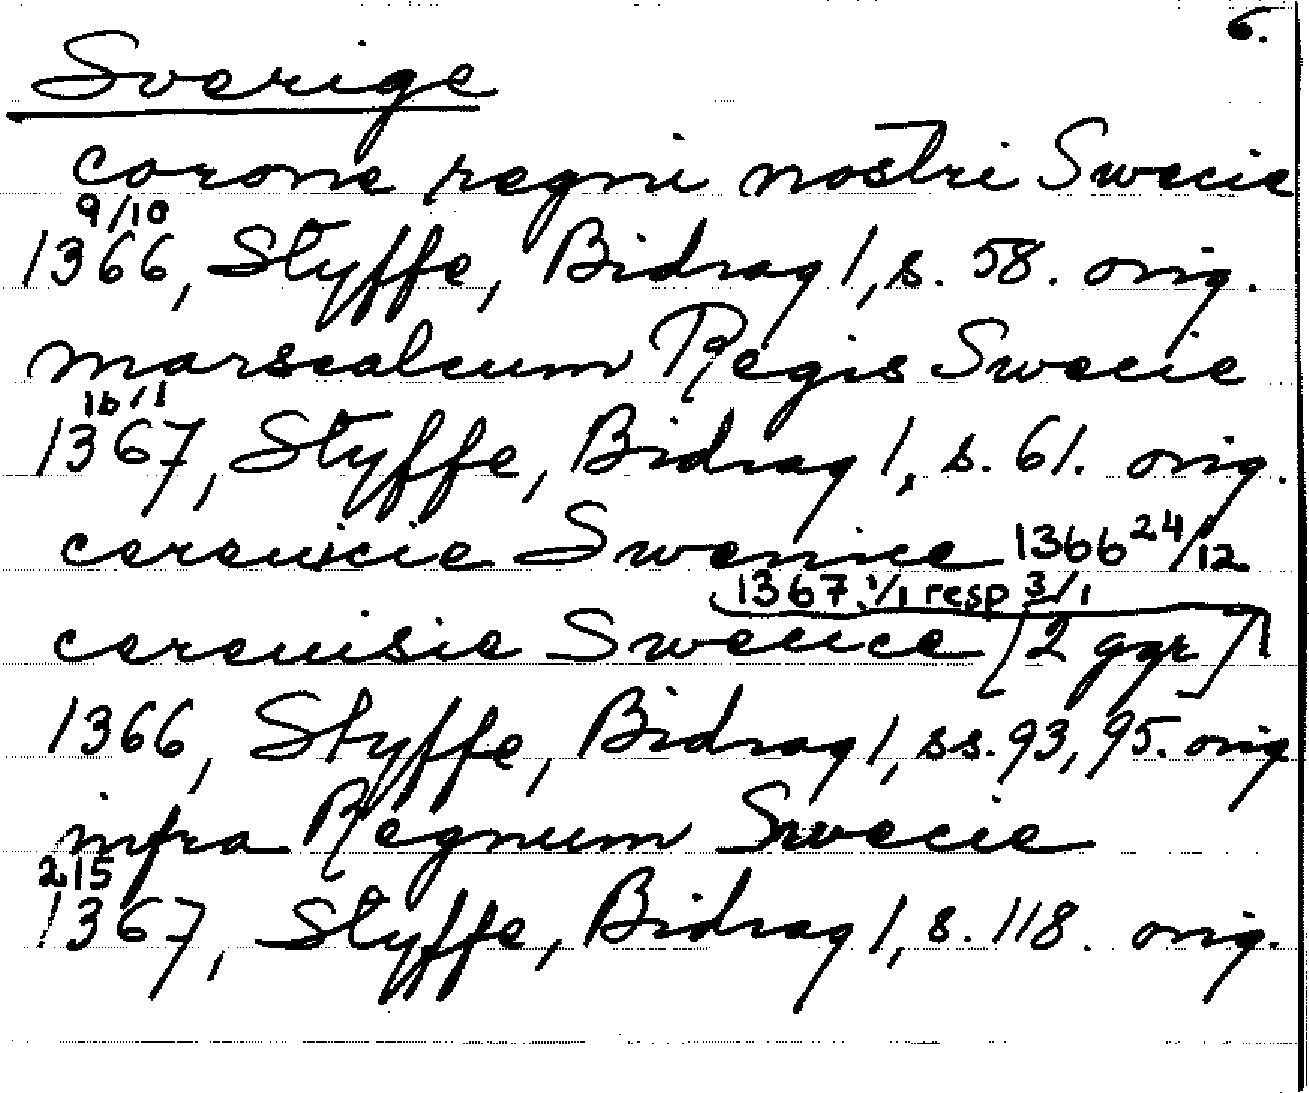 6.
Sverige
corone regni nostri Swecie
9/10
1366, Styffe, Bidrag 1, s. 58. orig.
marscalcum Regis Swecie
16/1
1367, Styffe, Bidrag 1, s. 61. orig.
cereuicie Swenice 1366 24/12
1367 1/1 resp 3/1
cereuisie Swenice [2 ggr]
1366, Styffe, Bidrag 1, ss. 93, 95. orig
infra Regnum Swecie
2/5
1367, Styffe, Bidrag 1, s. 118. orig.